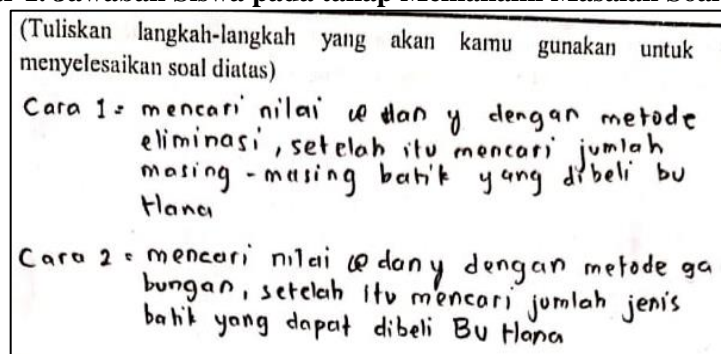 (Tuliskan langkah-langkah yang akan kamu gunakan untuk
menyelesaikan soal diatas)
Cara 1 = mencari nilai x dan y dengan metode
eliminasi, setelah itu mencari jumlah
masing-masing batik yang dibeli bu
Hana
Cara 2 = mencari nilai x dan y dengan metode ga
bungan, setelah itu mencari jumlah jenis
batik yang dapat dibeli Bu Hana